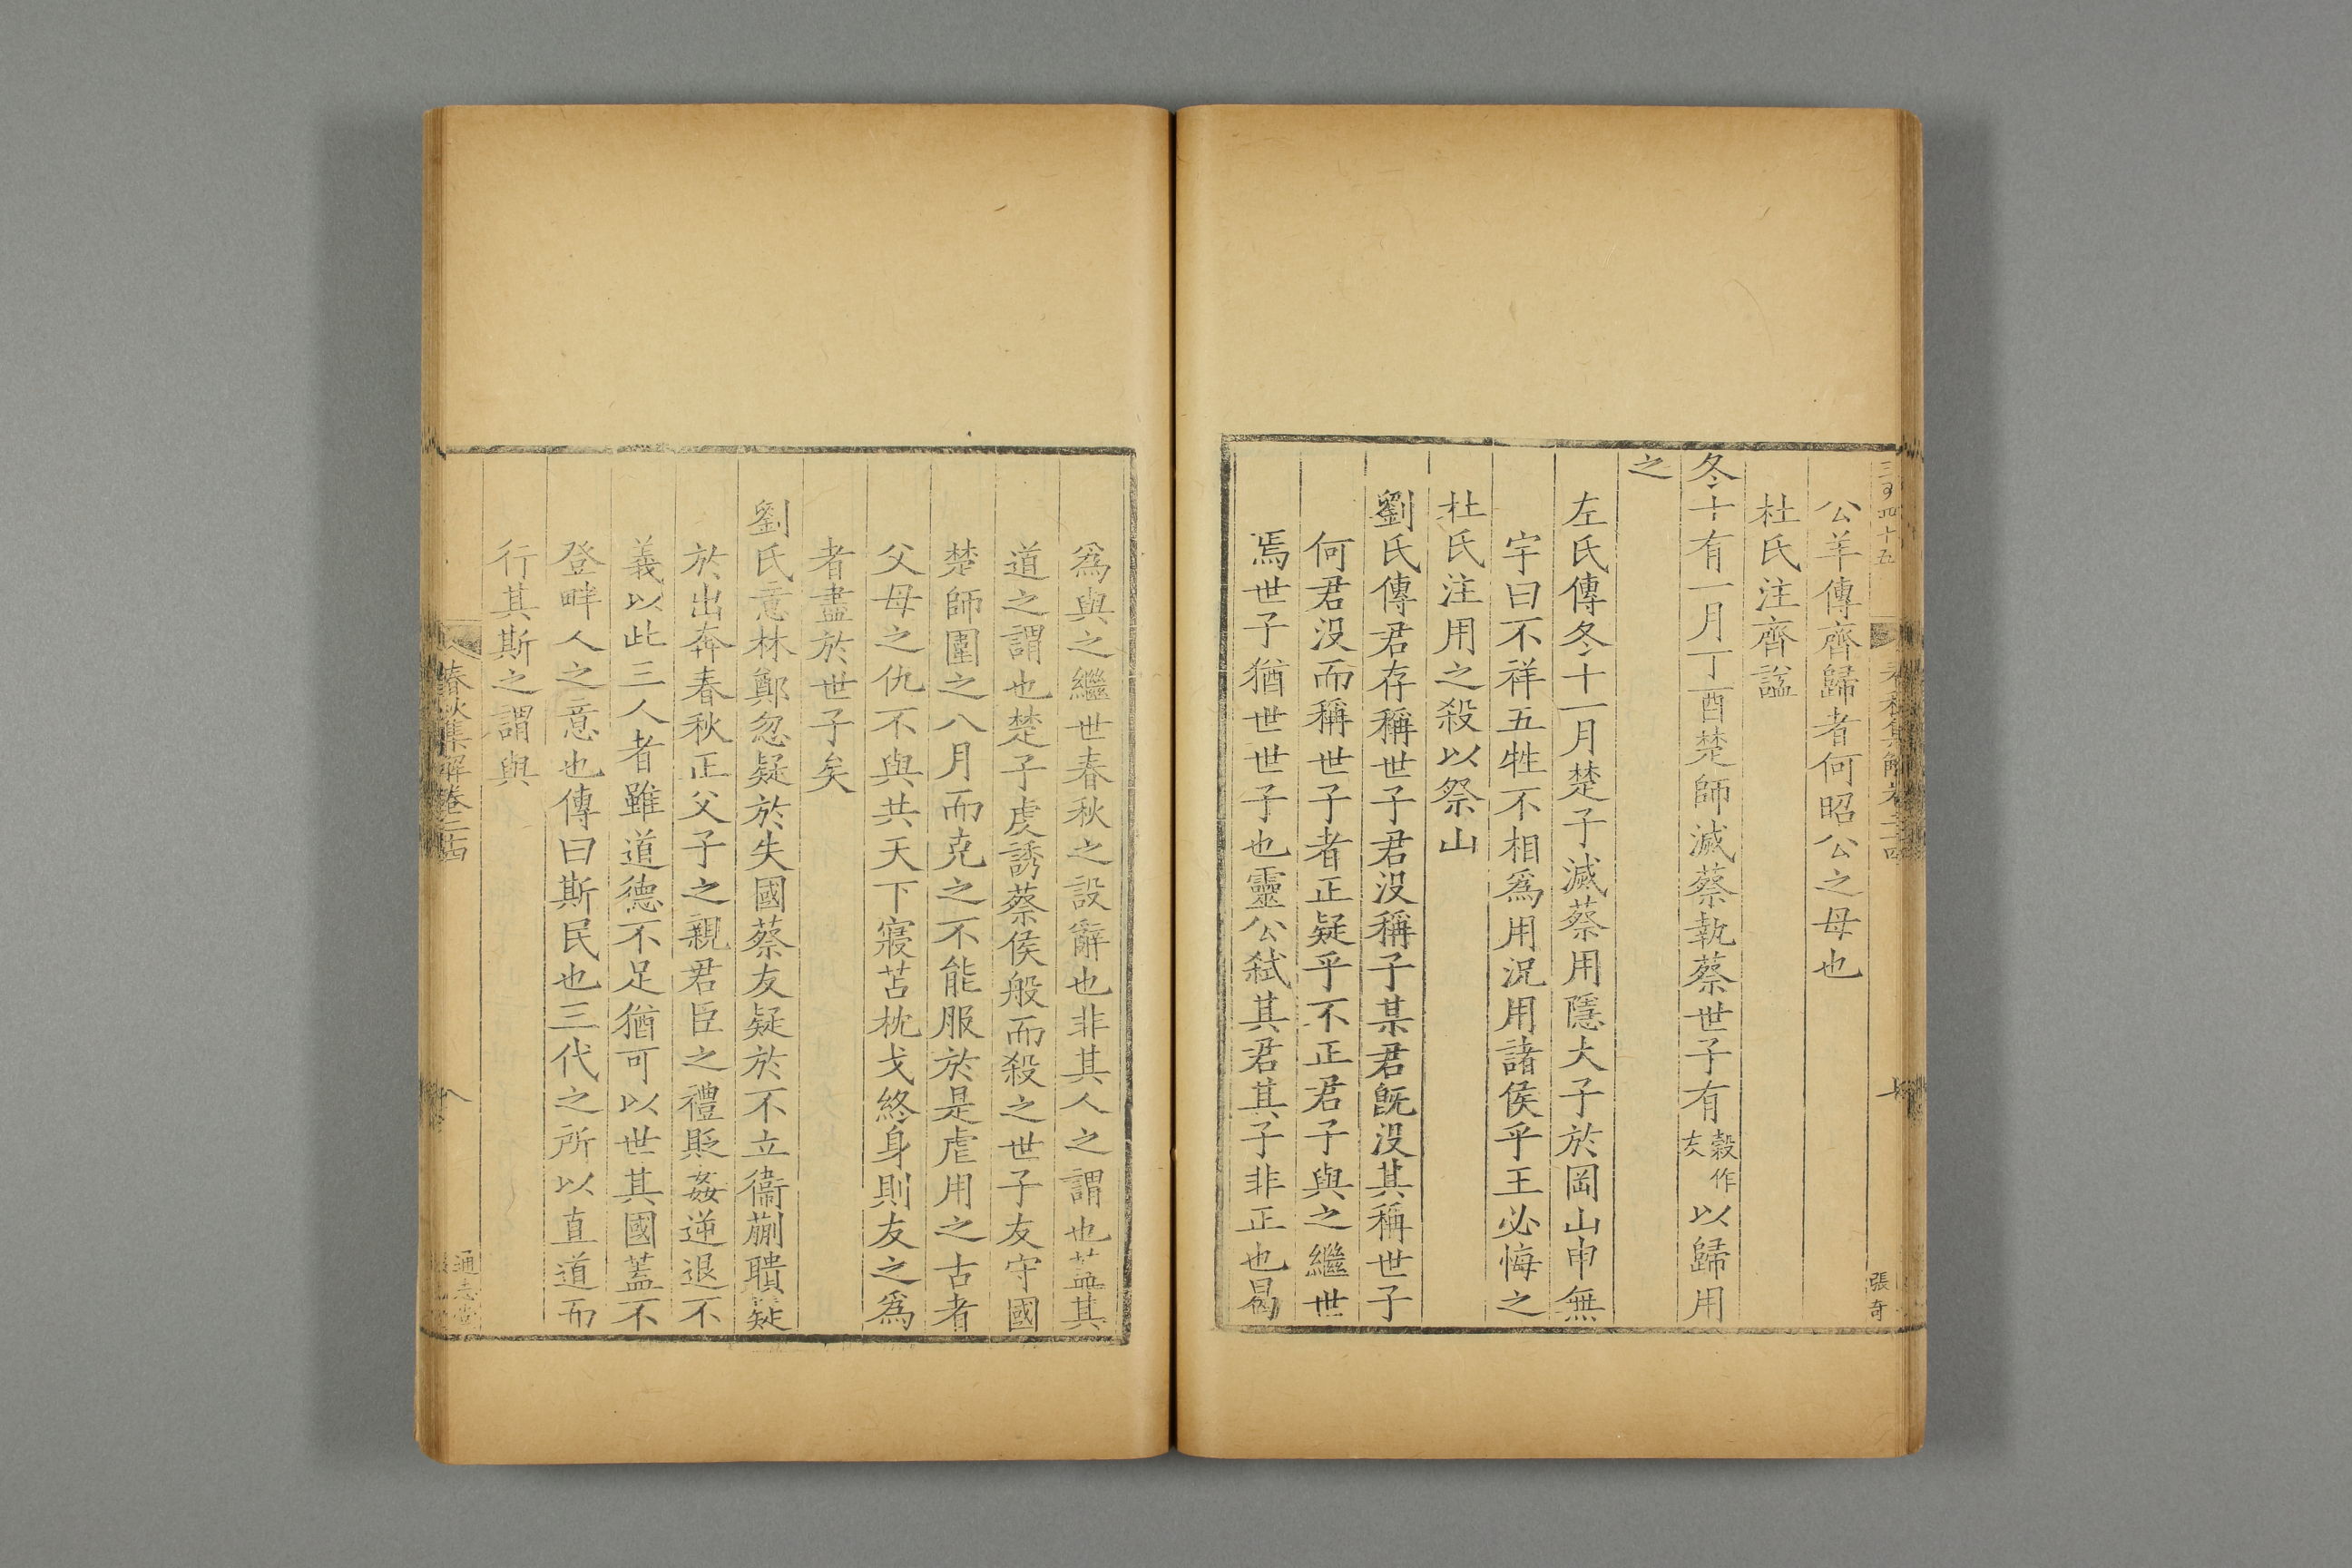 公羊傳齊歸者何昭公之母也
杜氏注齊諡
冬十有一月丁酉楚師滅蔡執蔡世子有穀作友以歸用
之
左氏傳冬十一月楚子滅蔡用隱大子於岡山申無
宇曰不祥五牲不相爲用况用諸侯乎王必悔之
杜氏注用之殺以祭山
劉氏傳君存稱世子君没稱子某君旣没其稱世子
何君没而稱世子者正疑乎不正君子與之繼世
焉世子猶世世子也靈公弑其君其子非正也曷
張奇
爲與之繼世春秋之設辭也非其人之謂也葢其
道之謂也楚子虔誘蔡侯般而殺之世子友守國
楚師圍之八月而克之不能服於是虐用之古者
父母之仇不與共天下寢苫枕戈終身則友之爲
者盡於世子矣
劉氏意林鄭忽疑於失國蔡友疑於不立衞蒯聵疑
於出奔春秋正父子之親君臣之禮貶姦逆退不
義以此三人者雖道德不足猶可以世其國蓋不
登畔人之意也傳曰斯民也三代之所以直道而
行其斯之謂與
春秋集解卷二十四
八
通志堂